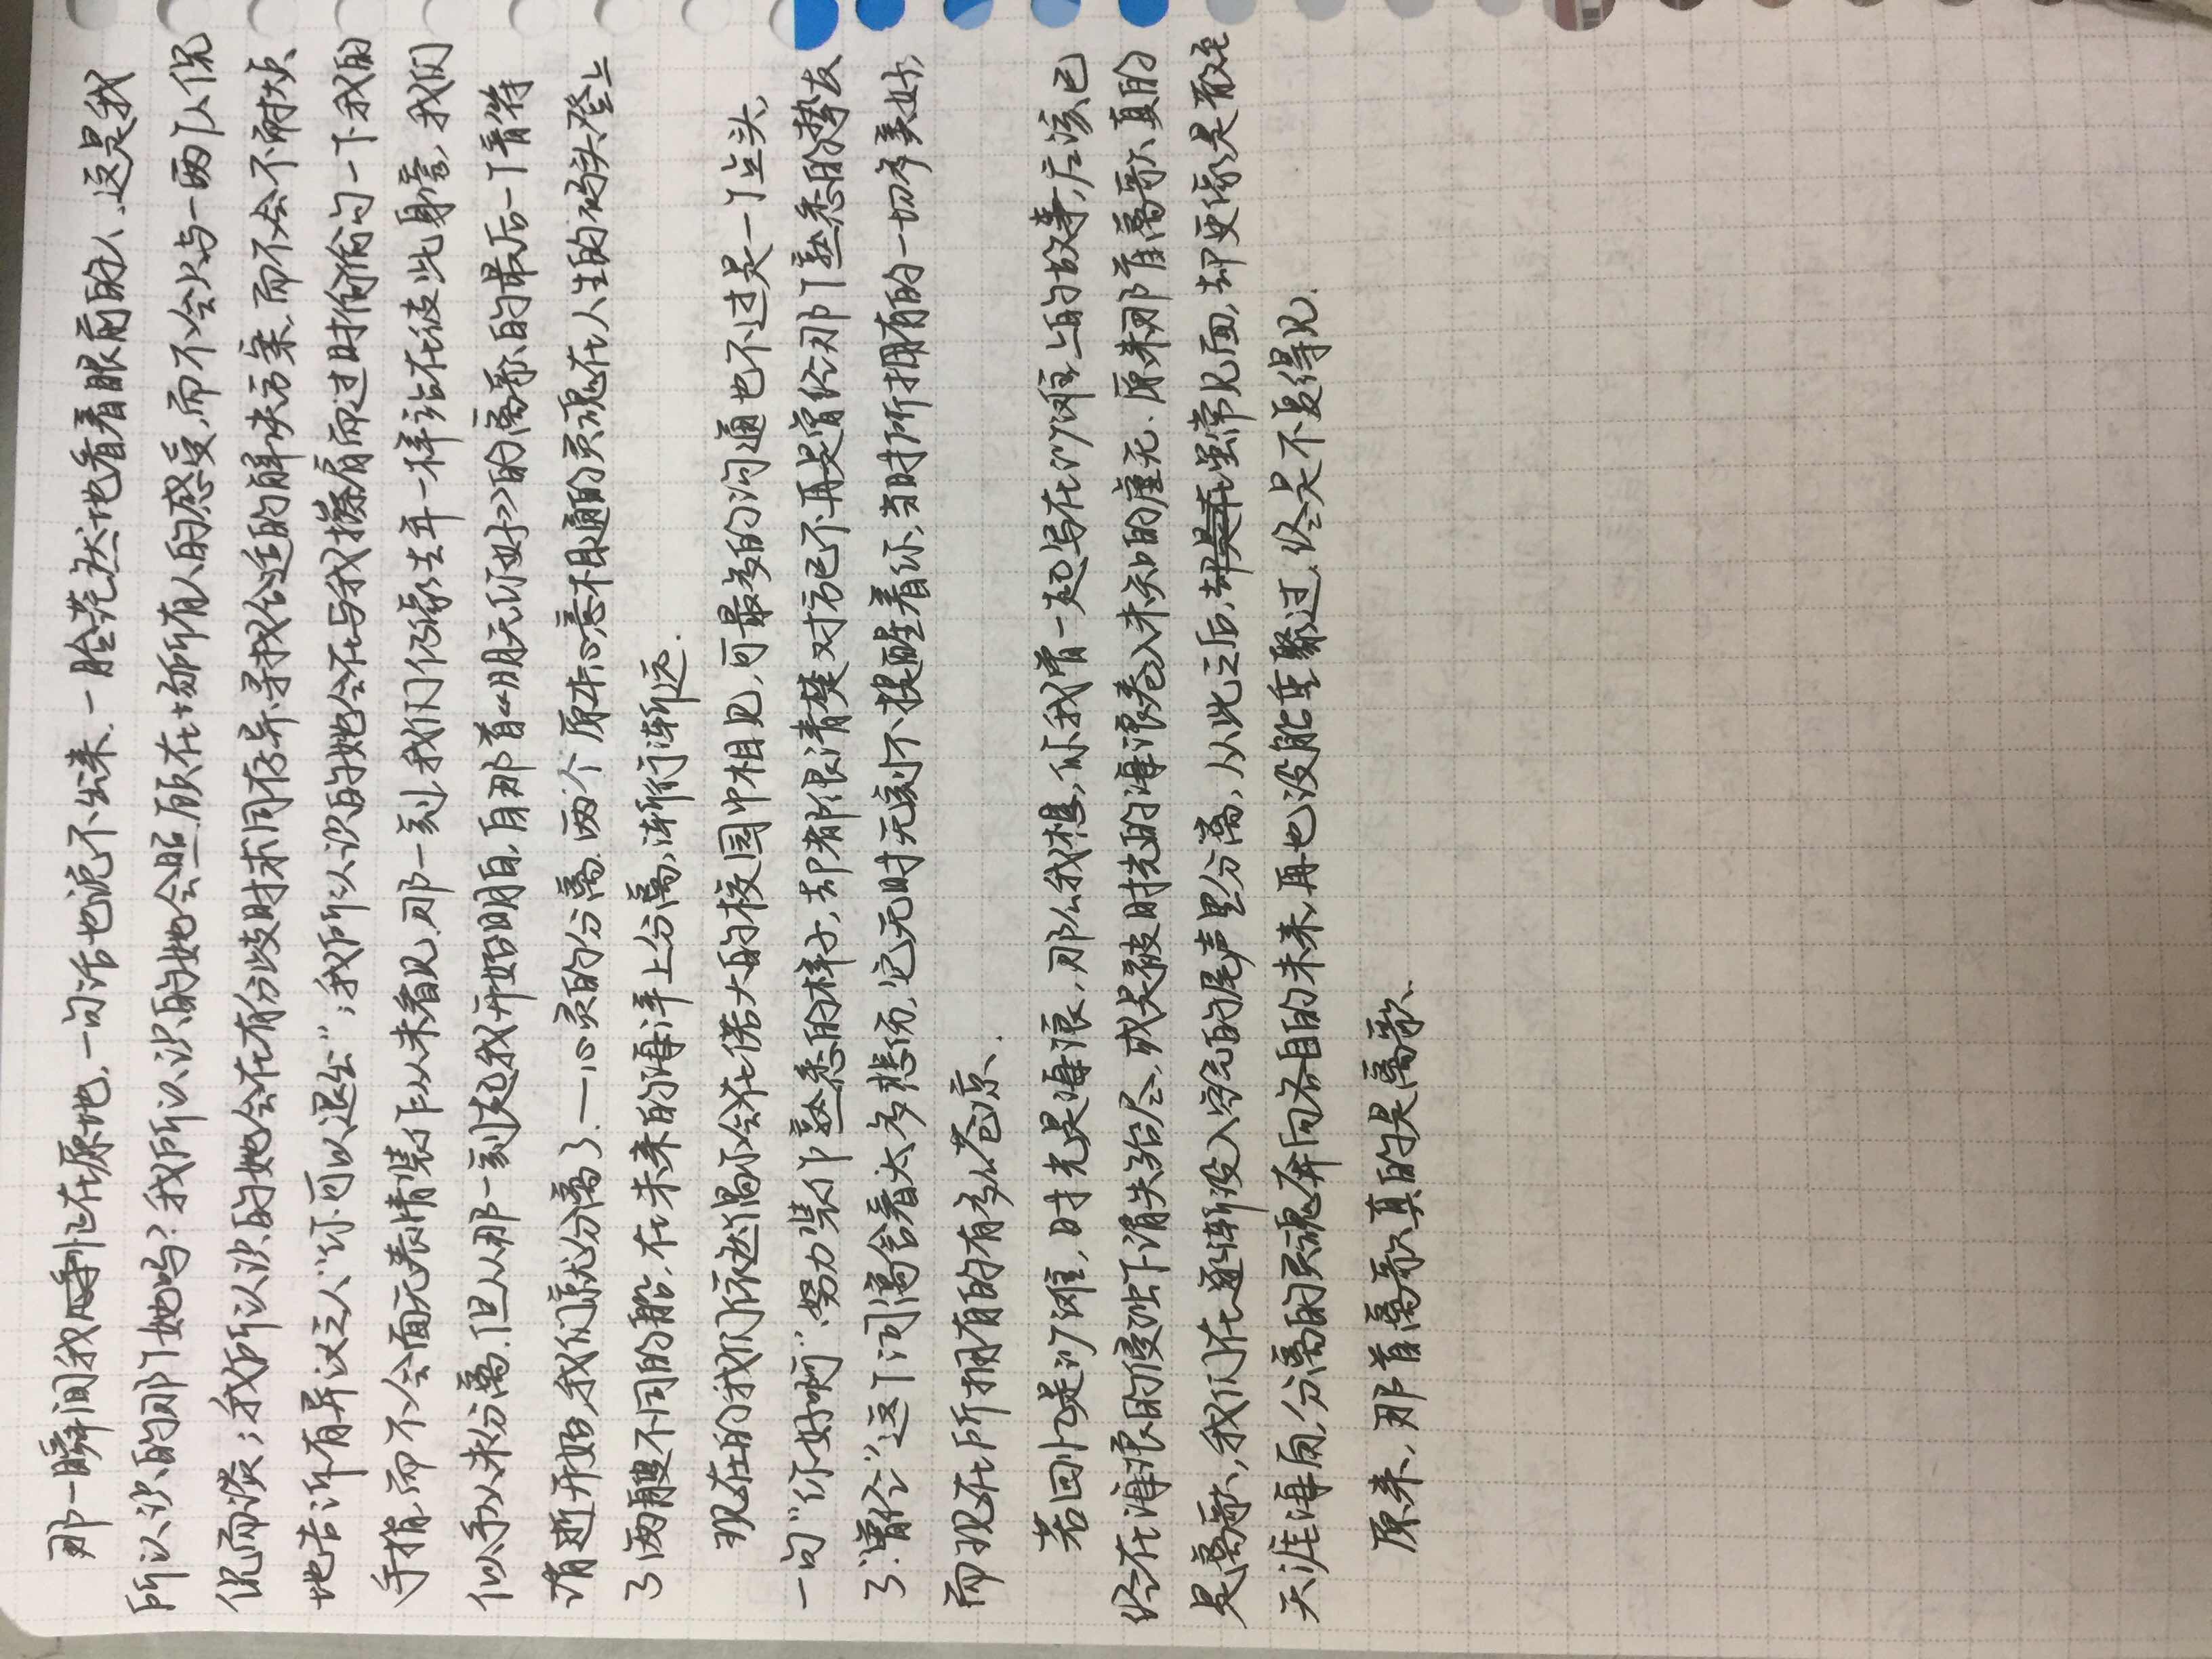 那一瞬间我呆在原地,一句话也说不出来.一脸茫然地看着眼前的人.这是我
所认识的那个她吗?我所认识的她会照顾在场所有人的感受,而不会火与一两个人侃
侃而谈;我所认识的她会在有分歧时求同存异,寻找合适的解决方案,而不会不耐烦
地告诉有异议之人“你可以退出”;我所认识的她会在与我擦肩而过时偷勾一下我的
手指,而不会面无表情装作从未看见.那一刻,我们仍像去年一样站在彼此身旁,我们
似乎从未分离.但从那一刻起我开始明白,自那首《朋友你好》的离歌的最后一个音符
消逝开始,我们就分离了.—心灵的分离.两个原本心意相通的灵魂在人生的码头登上
了两艘不同的船,在未来的海洋上分离,渐行渐远.
现在的我们依然偶尔会在偌大的校园中相见,可最多的沟通也不过是一个点头,
一句“你好啊”.努力装作熟悉的样子,却都很清楚对方已不再是曾经那个熟悉的挚友
了.“曾经”这个词离含着太多悲伤,它无时无刻不提醒着你,当时所拥有的一切多美好,
而现在所拥有的有多么苍凉.
若回忆是沙滩,时光是海浪,那么我想,你我曾一起写在沙滩上的故事,应该已
经在海浪的侵蚀下消失殆尽,或是被时光的海浪卷入未知的虚无.原来那首离歌,真的
是离歌,我们在逐渐没入空气的尾声里分离,从此之后,虽常见面,却更像是散在
天涯海角,分离的灵魂奔向各自的未来,再也没能重聚过,终是不复得见.
原来,那首离歌,真的是离歌.